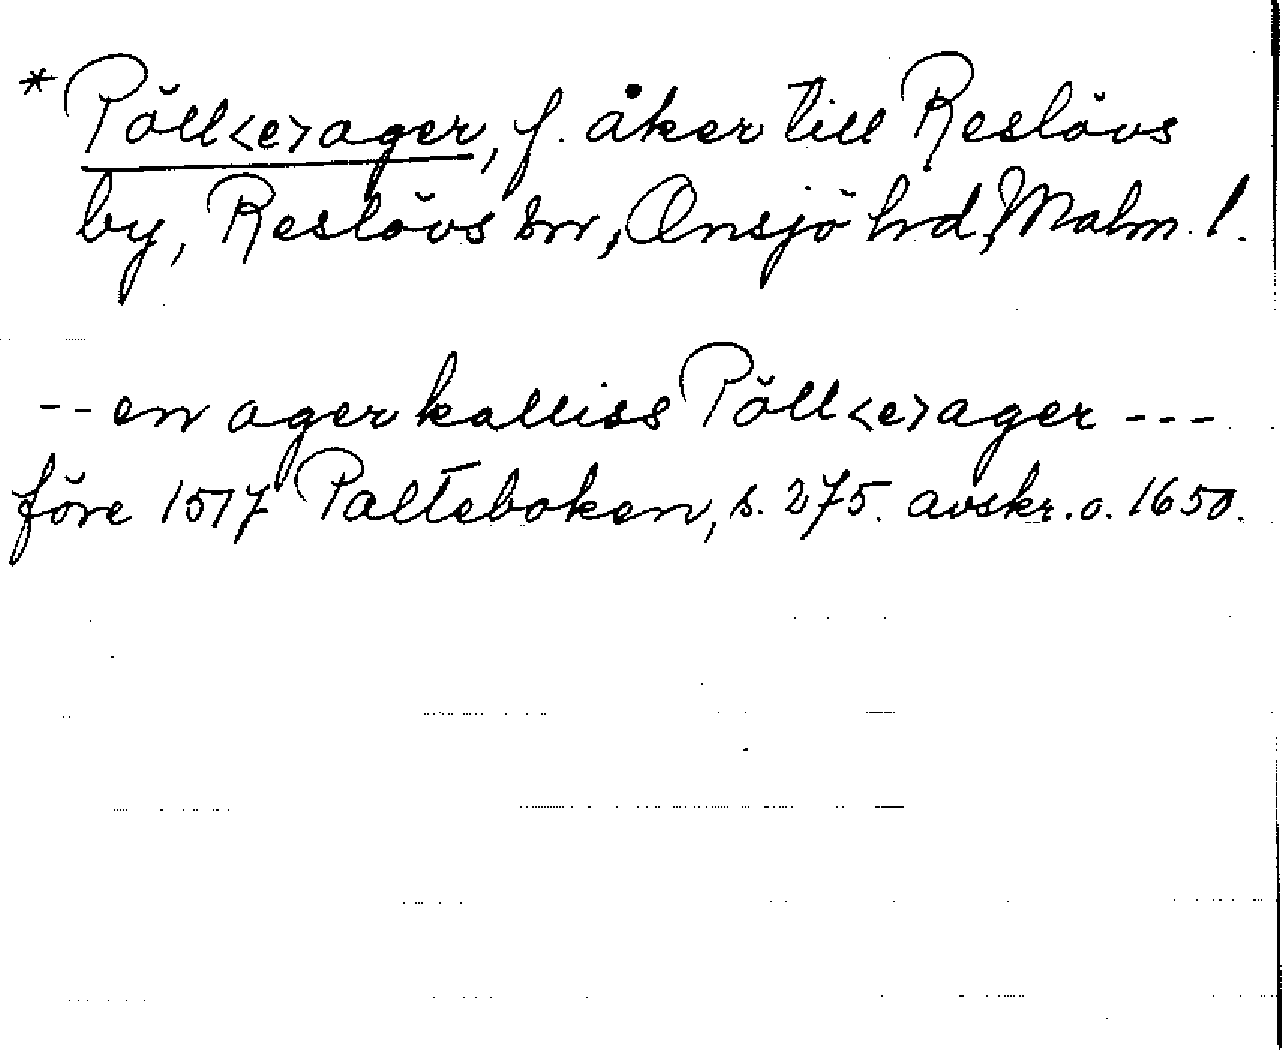 * Pöll<e>ager, f. åker till Reslövs
by, Reslövs sn, Onsjö hrd, Malm. l.
-- en ager kalliss Pöll<e>ager ---
före 1517 Palteboken, s. 275. avskr. o. 1650.